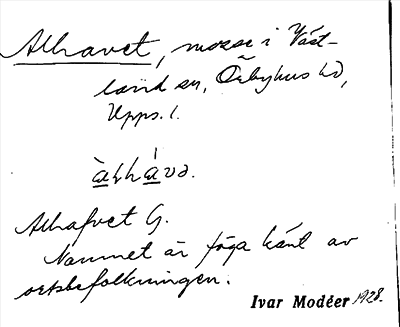 Alhavet, mosse i Väst-
land sn, Örbyhus hd,
Upps. l.
àlhávə.
Alhafvet G.
Namnet är föga känt av
ortsbefolkningen.
Ivar Modéer 1928.